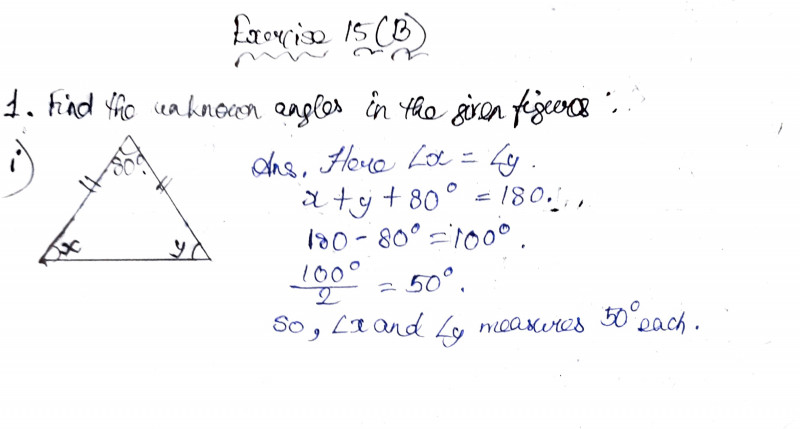 Exercise 15(B)
1. Find the unknown angles in the given figures :
i)
80°.
x
y
Ans. Here ∠x = ∠y.
x + y + 80° = 180.
180 - 80° = 100°.
100°/2 = 50°.
So, ∠x and ∠y measures 50° each.